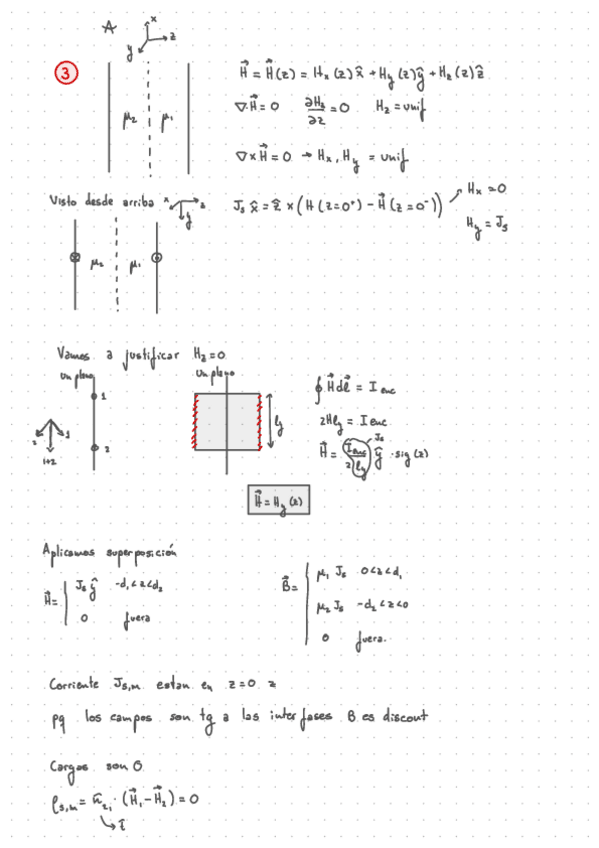 A
x
z
y
3
H⃗ = H⃗(z) = Hx(z) x̂ + Hy(z) ŷ + Hz(z) ẑ
μ2 μ1
∇·H⃗ = 0 ∂Hz/∂z = 0 Hz = unif
∇×H⃗ = 0 → Hx, Hy = unif
Visto desde arriba x z y
Js x̂ = ẑ × (H(z=0⁺) − H⃗(z=0⁻)) Hx = 0
Hy = Js
μ2 μ1
Vamos a justificar Hz = 0
un plano un plano
1
2
2 1
1+2
ly
∮ H⃗ dl⃗ = I enc
2Hly = I enc
H⃗ = I enc / 2 ly ŷ · sig(z) Js
H⃗ = Hy(z)
Aplicamos superposición
H⃗ = | Js ŷ -d1<z<d2
0 fuera
B⃗ = | μ1 Js 0<z<d1
μ2 Js -d2<z<0
0 fuera.
Corriente Js,m estan en z=0 z
pq los campos son tg a las interfases B es discont
Cargas son 0
ρs,m = n̂21 · (H⃗1 − H⃗2) = 0
→ ẑ